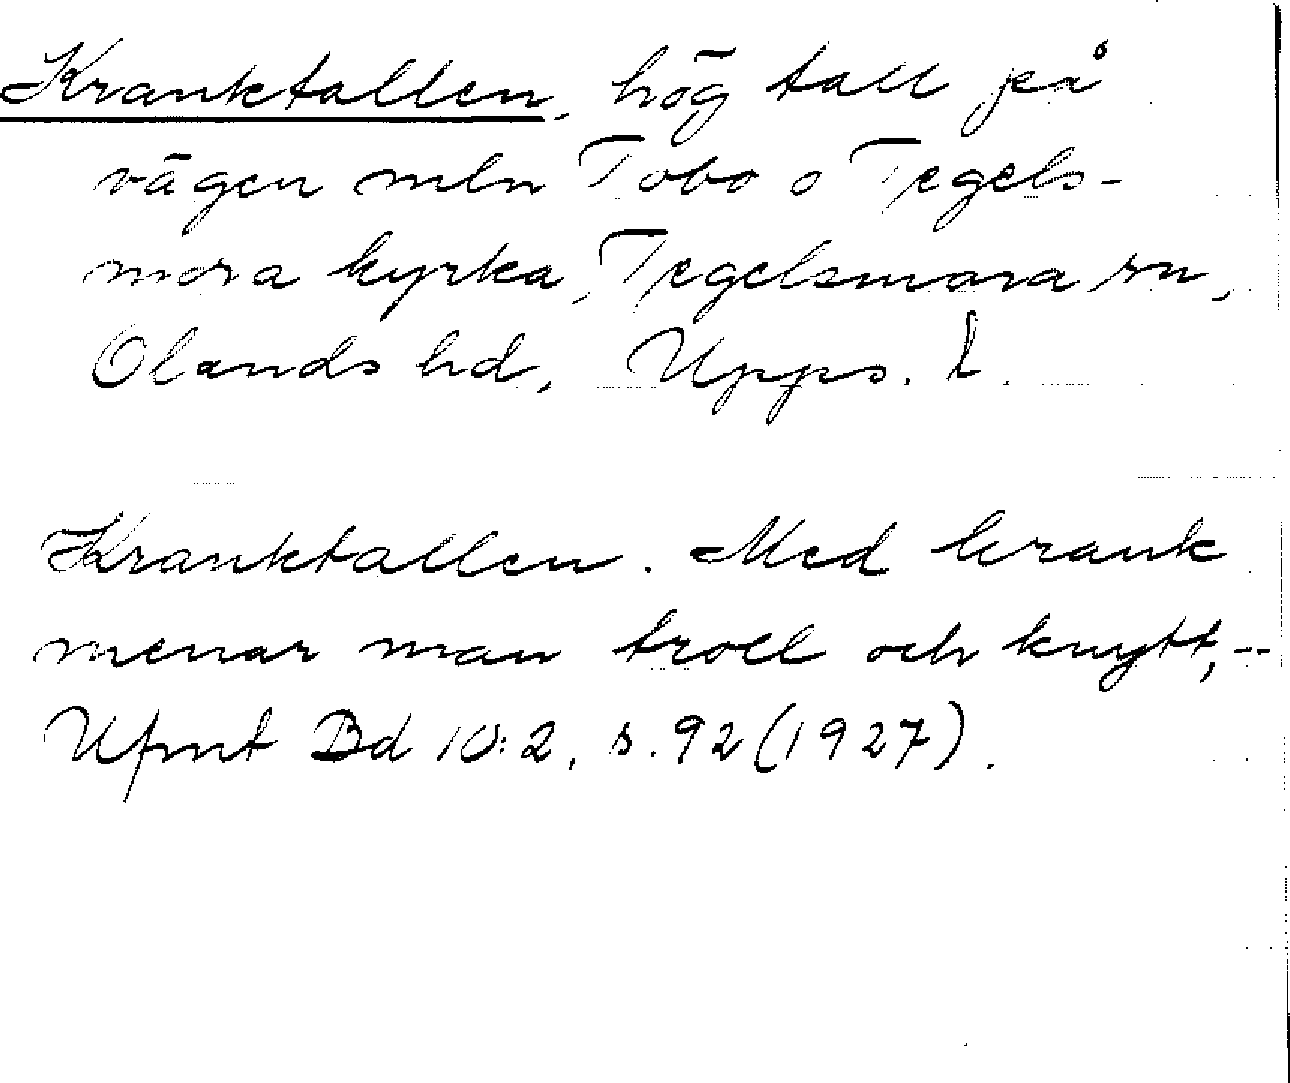 Kranktallen, hög tall på
vägen mln Tobo o Tegels-
mora kyrka, Tegelsmora sn,
Olands hd, Upps. l.
Kranktallen. Med krank
menar man troll och knytt, --
Ufmt Bd 10:2, s. 92 (1927).